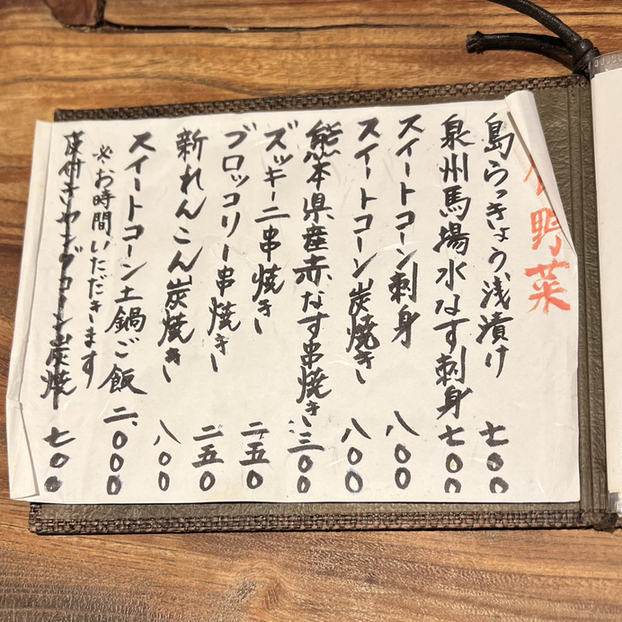 野菜
島らっきょう浅漬け 七〇〇
泉州馬場水なす刺身 七〇〇
スイートコーン刺身 八〇〇
スイートコーン炭焼き 八〇〇
熊本県産赤なす串焼き 三〇〇
ズッキーニ串焼き 二五〇
ブロッコリー串焼き 二五〇
新れんこん炭焼き 八〇〇
スイートコーン土鍋ご飯 二、〇〇〇
※お時間いただきます
ヤングコーン炭焼 七〇〇